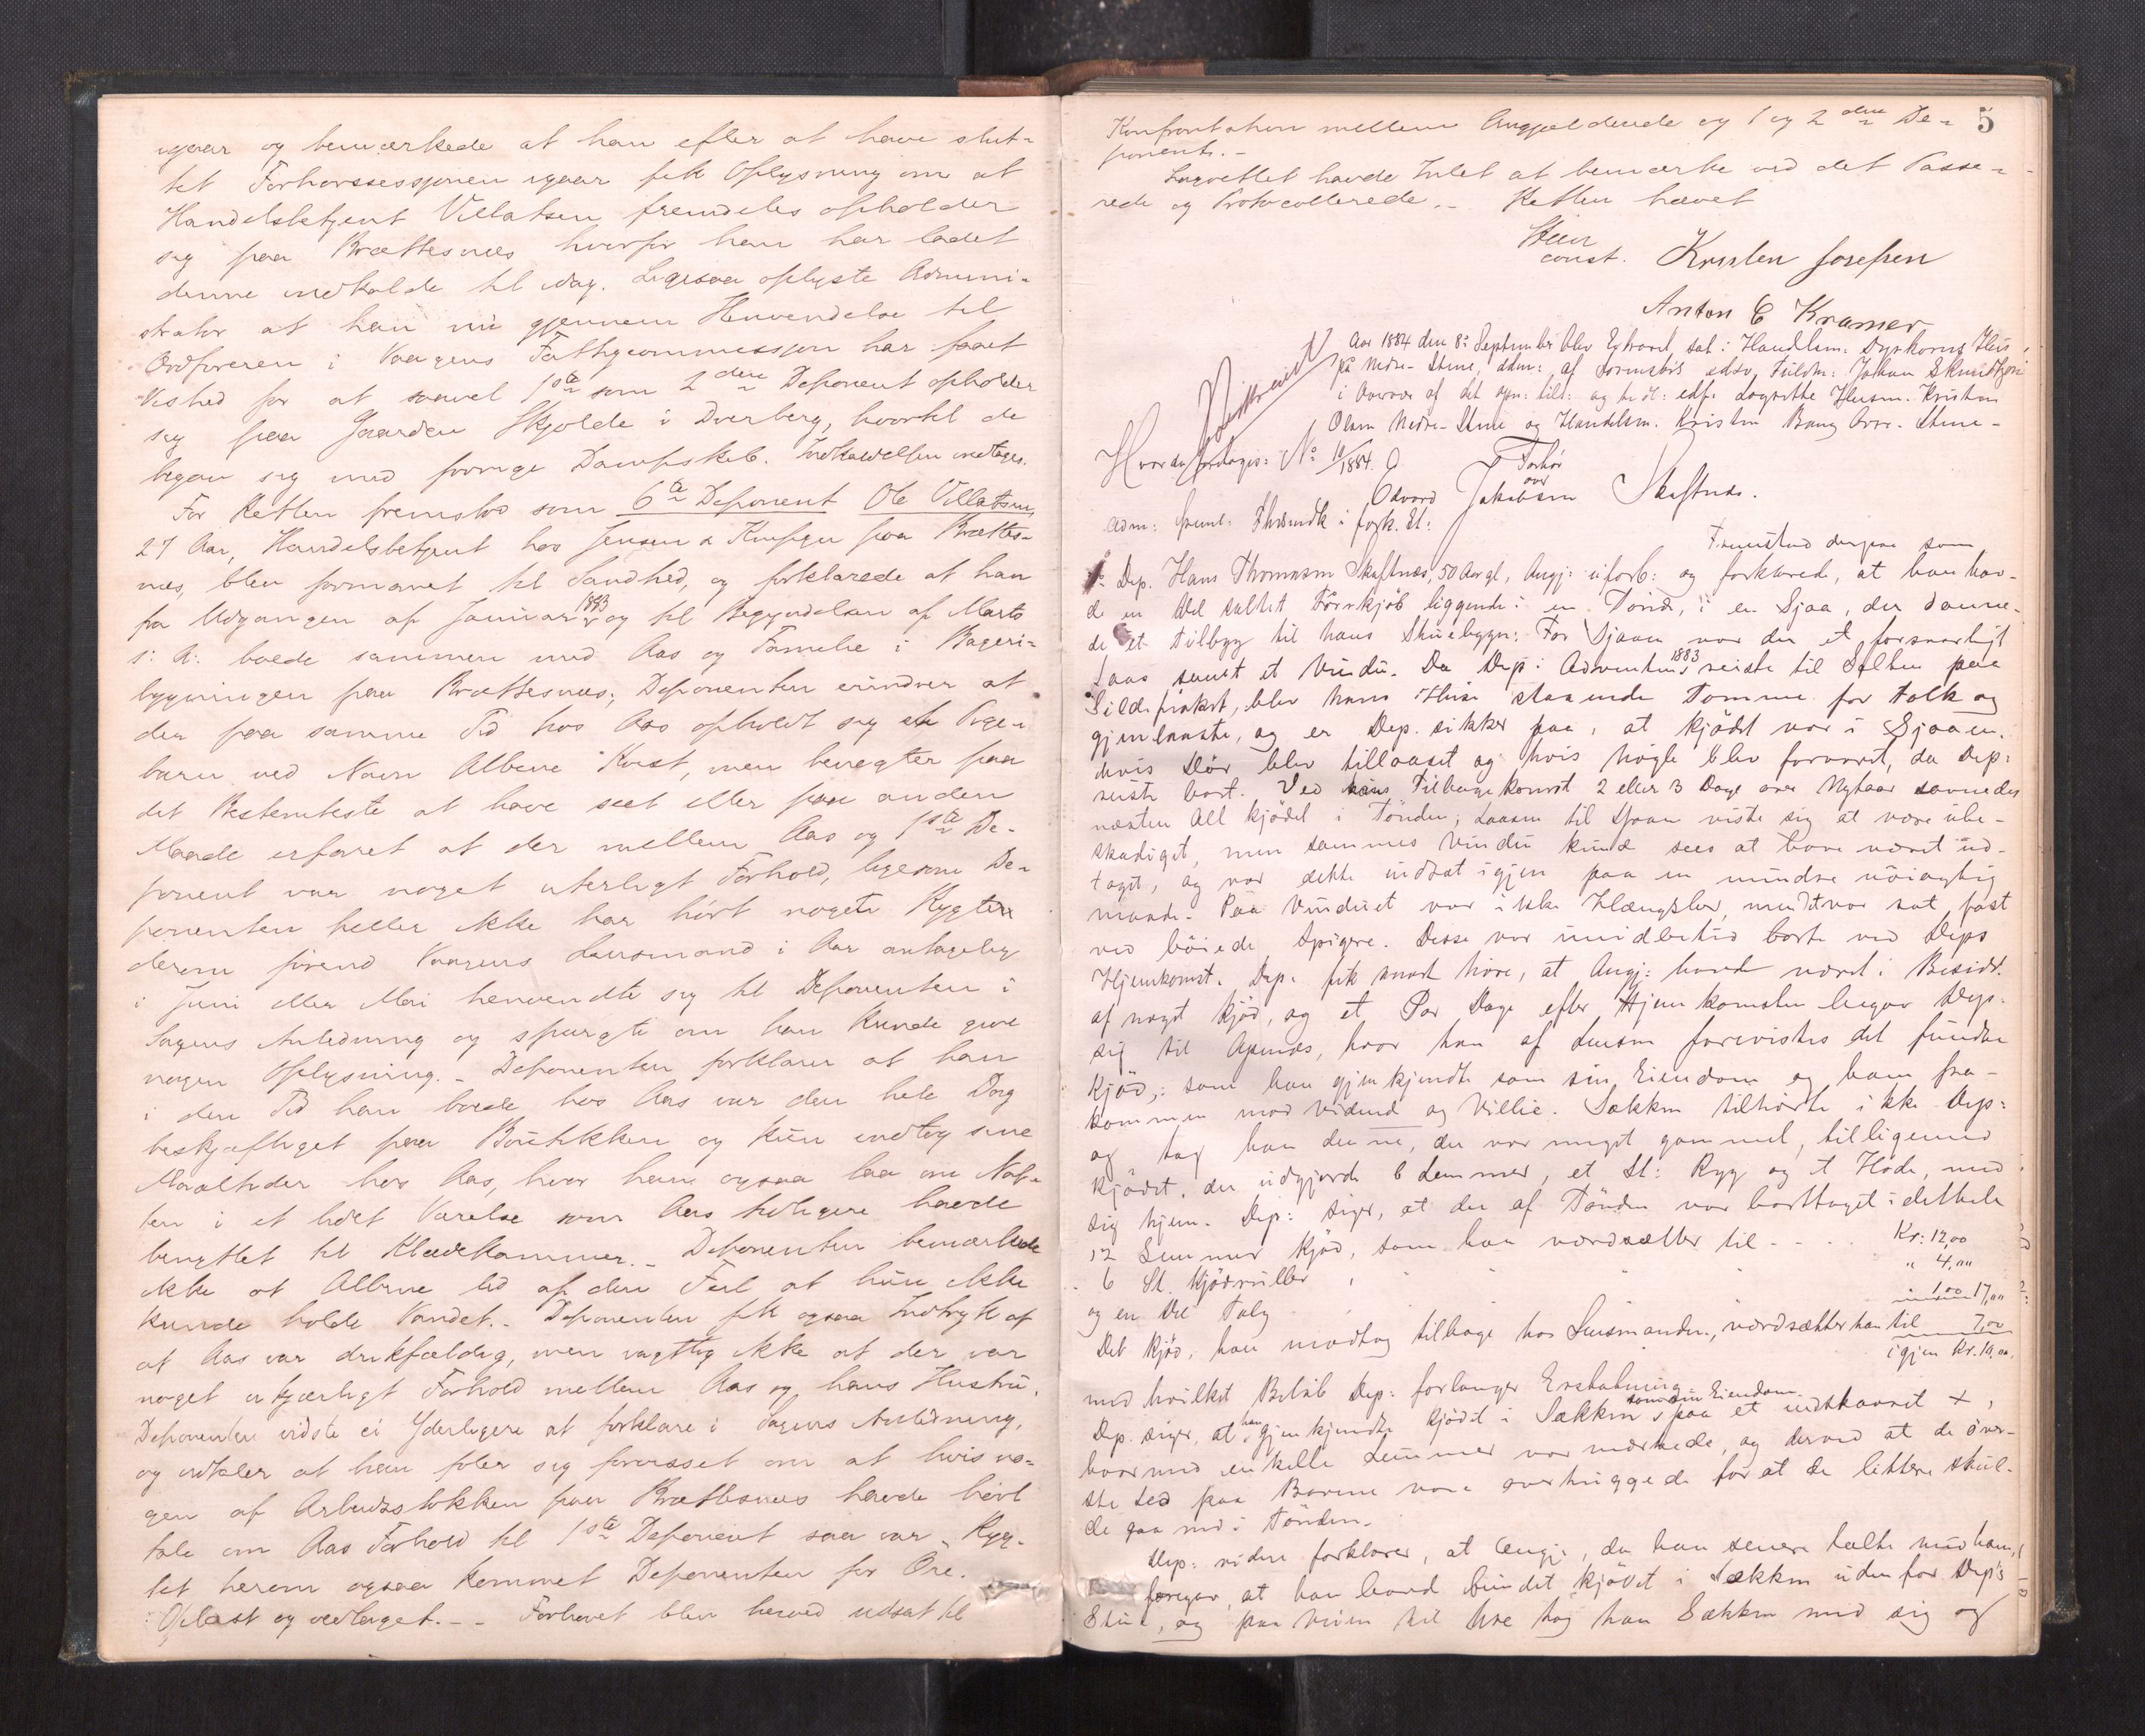 igaar og bemærkede at han efter at have slut-
tet Forhørssessjonen igaar fik Oplysning om at
Handelsbetjent Villatsen fremdeles opholder
sig paa Brættesnæs hvorfor han har ladet
denne indkalde til idag. Ligesaa oplyste Admini-
strator at han nu gjennem Henvendelse til
Ordføreren i Vaagens Fattigcommission har faaet
Vished for at saavel 1ste som 2den Deponent opholder
sig paa Gaarden Skjolde i Dverberg, hvortil de
begav sig med forrige Dampskib. Indkaldelsen vedtoges.
For Retten fremstod som 6te Deponent Ole Villatsen,
27 Aar, Handelsbetjent hos Jensen & paa Brættes-
næs, blev formanet til Sandhed, og forklarede at han
fra Udgangen af Januar 1883 og til Begyndelsen af Marts
s: A: boede sammen med Aas og Familie i Bageri-
bygningen paa Brættesnæs; Deponenten erindrer at
der paa samme Tid hos Aas opholdt sig et Pige-
barn ved Navn Albine Kvist, men benegter paa
det Bestemteste at have seet eller paa anden
Maade erfaret at der mellem Aas og 1ste De-
ponent var noget uterligt Forhold, ligesom De-
ponenten heller ikke har hørt noget Rygte
derom førend Vaagens Lensmand i Aar antagelig
i Juni eller Mai henvendte sig til Deponenten i
Sagens Anledning og spurgte om han kunde give
nogen Oplysning. - Deponenten forklarer at han
i den Tid han boede hos Aas var den hele Dag
beskjæftiget paa Boutikken og kun indtog sine
Maaltider hos Aas, hvor han ogsaa laa om Nat-
ten i et lidet Værelse som Aas tidligere havde
benyttet til Klædekammer. - Deponenten bemærkede
ikke at Albine led af den Feil at hun ikke
kunde holde Vandet. - Deponenten fik ogsaa Indtryk af
at Aas var drikfældig, men iagttog ikke at der var
noget ukjærligt Forhold mellem Aas og hans Hustru.
Deponenten vidste ei Yderligere at forklare i Sagens Anledning,
og udtaler at han føler sig forvisset om at hvis no-
gen af Arbeidsstokken paa Brættesnæs havde hørt
tale om Aas Forhold til 1ste Deponent saa var Ryg-
tet herom ogsaa kommet Deponenten for Øre.
Oplæst og vedtaget. - - Forhøret blev herved udsat til
5
Konfrontation mellem Angjældende og 1 og 2den De-
ponent. -
Lagrettet havde Intet at bemærke ved det Passe-
rede og Protocollerede. - Retten hævet
Steen
const. Kristen Josefsen
Anton C Kramer
Aar 1884 den 8: September blev Extraret sat i Handlsm. Dyrkorns Hus
på Nedre- Stene, adm: af Sorenskr's edsv. Fuldm: Johan
i Overvær af det opn: tilt: og edf. Lagrette Husm. Kristen
Olsen Nedre-Stene og Handelsm. Kristen Bang Øvre-Stene -
Hvorda foretoges: No 10/1884. Forhør
over
Edvard Jakobsen Skaftnæs.
adm: freml: i fork. St:
Fremstod dernæst som
1: Dep. Hans Thomassen Skaftnæs, 50 Aar gl, Angj: uforb: og forklared, at han hav-
de en Del saltet Fårekjød liggende i en Tønde, i en Sjaa, der danne-
de et Tilbyg til hans Stuebygn: For Sjaaen var der et forsvarligt
Laas samt et Vindu. Da Dep: i Adventen 1883 reiste til Salten paa
Sildefisket, blev hans Huse staaende tomme for Folk og
gjenlaaste, og er Dep. sikker paa, at kjødet var i Sjaaen,
hvis Dør blev tillaaset og hvis nøgle blev forvaret, da Dep:
reiste bort. Ved hans Tilbagekomst 2 eller 3 Dage over Nytaar savnedes
næsten Alt kjødet i Tønden; Laasen til Sjaaen viste sig at være ube-
skadiget, men sammes Vindu kunde sees at have været ud-
taget, og var dette indsat igjen paa en mindre nøiagtig
maade. Paa Vinduet var ikke Hængsler, men det var sat fast
ved bøiede Spigere. Disse var imidlertid borte ved Deps
Hjemkomst. Dep. fik snart høre, at Angj: havde været i Besidd.
af noget kjød, og et Par Dage efter Hjemkomsten begav Dep.
sig til Apnæs, hvor han af Lensm forevistes det fundne
kjød,: som han gjenkjendte som sin Eiendom og ham fra-
kommen mod Vidend og Villie. Sækken tilhørte ikke Dep:
og tog han denne, der var meget gammel, tilligemed
kjødet, der udgjorde 6 Lemmer, et St: Ryg og et Hode, med
sig hjem. Dep: siger, at der af Tønden var borttaget i dethele
12 Lemmer kjød, som han værdsætter til - - - Kr: 12,00
6 St. kjødruller , " " " " 4,00
og en Del Talg " 1,00 17,00
Det kjød, han modtog tilbage hos Lensmanden, værdsætter han til 7,00
igjen Kr. 10,00.
med hvilket Beløb Dep: forlanger Erstatning
Dep. siger, at han gjenkjendte kjødet i Sækken som sin Eiendom paa et indskaaret +,
hvormed enkelte Lemmer var mærkede, og derved at de øver-
ste Led paa Bovene vare overhuggede for at de lettere skul-
de gaa ned i Tønden.
Dep: videre forklarer, at Angj, da han senere talte med ham,
foregav, at han havd fundet kjødet i Sækken uden for Dep's
Stue, og paa Veien til Øre tog han Sækken med sig og